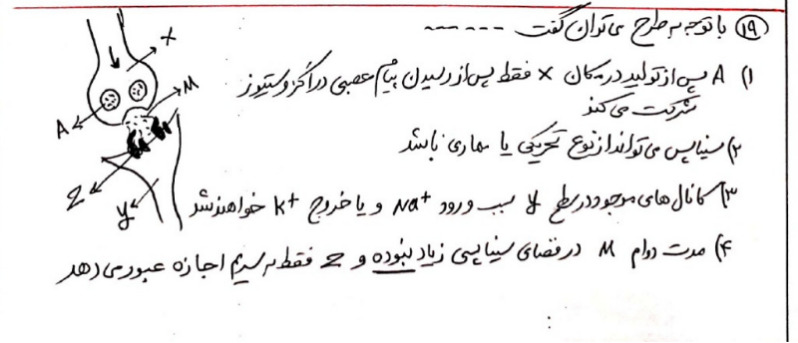 ۱۹) با توجه به طرح می توان گفت ------
۱) A پس از تولید در مکان X فقط پس از رسیدن پیام عصبی در اگزوسیتوز
شرکت می کند
۲) سیناپس می تواند از نوع تحریکی یا مهاری باشد
۳) کانال های موجود در سطح y سبب ورود Na+ و یا خروج K+ خواهند شد
۴) مدت دوام M در فضای سیناپسی زیاد نبوده و Z فقط به سدیم اجازه عبور می دهد
X
M
A
Z
y